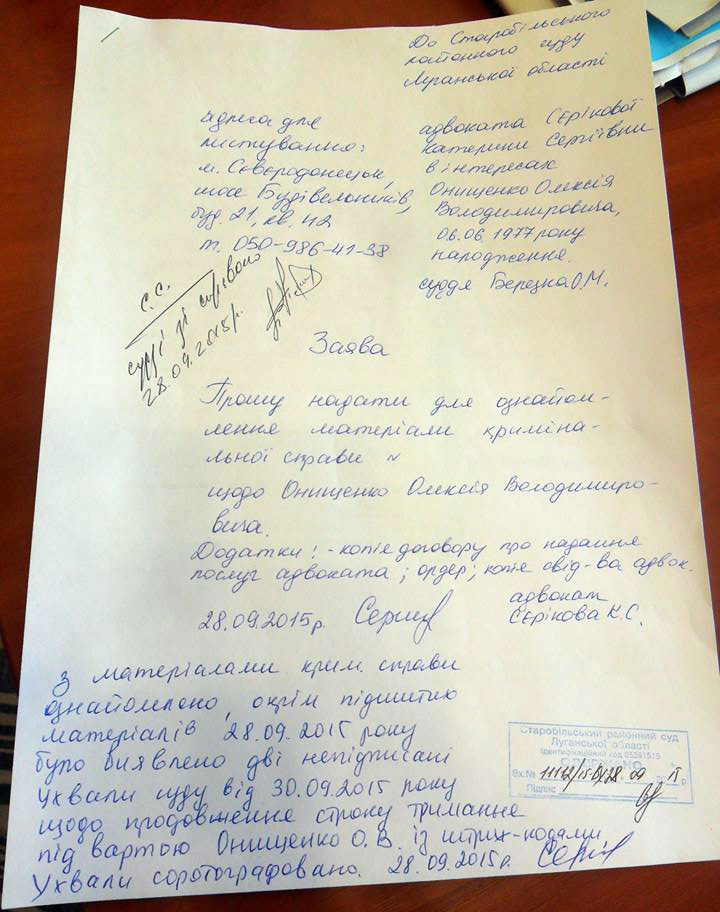 До Старобільського
районного суду
Луганської області
адреса для
листування:
м. Сєвєродонецьк,
шосе Будівельників,
буд. 21, кв. 42
т. 050-986-41-38
адвоката Сєрікової
Катерини Сергіївни
в інтересах
Онищенко Олексія
Володимировича,
06.06.1977 року
народження.
суддя Березка О.М.
С.С.
судді
28.09.2015р.
Заява
Прошу надати для ознайом-
лення матеріали криміна-
льної справи
щодо Онищенко Олексія Володимиро-
вича.
Додатки: - копія договору про надання
послуг адвоката; ордер; копія свід-ва адвок.
28.09.2015р.
адвокат
Сєрікова К.С.
З матеріалами крим. справи
ознайомлено, окрім підшитих
матеріалів 28.09.2015 року
було виявлено дві непідписані
ухвали суду від 30.09.2015 року
щодо продовження строку тримання
під вартою Онищенко О.В. із штрих-кодами
Ухвали сфотографовано. 28.09.2015р.
Старобільський районний суд
Луганської області
Ідентифікаційний код
ОДЕРЖАНО
Вх.№ 28 09 15 р
Підпис